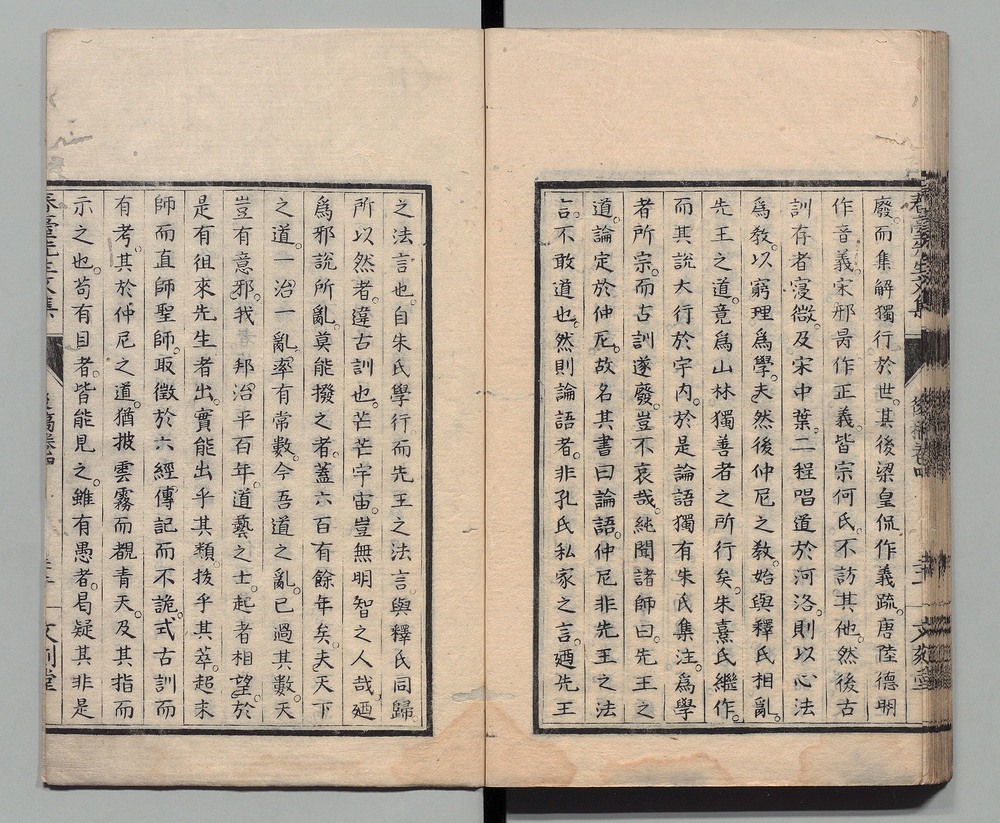 廢。而集解獨行於世。其後梁皇侃作義疏。唐陸德明
作音義。宋邢昺作正義。皆宗何氏。不訪其他。然後古
訓存者寖微。及宋中葉。二程唱道於河洛。則以心法
爲教。以窮理爲學。夫然後仲尼之教。始與釋氏相亂。
先王之道。竟爲山林獨善者之所行矣。朱熹氏繼作。
而其說大行於宇內。於是論語獨有朱氏集注。爲學
者所宗。而古訓遂廢。豈不哀哉。純聞諸師曰。先王之
道。論定於仲尼。故名其書曰論語。仲尼非先王之法
言。不敢道也。然則論語者。非孔氏私家之言。廼先王
之法言也。自朱氏學行。而先王之法言。與釋氏同歸。
所以然者。違古訓也。芒芒宇宙。豈無明智之人哉。廼
爲邪說所亂。莫能撥之者。蓋六百有餘年矣。夫天下
之道。一治一亂。率有常數。今吾道之亂。已過其數。天
豈有意邪。我 邦治平百年。道藝之士。起者相望。於
是有徂來先生者出。實能出乎其類。拔乎其萃。超末
師而直師聖師。取徵於六經傳記而不詭。式古訓而
有考。其於仲尼之道。猶披雲霧而覩青天。及其指而
示之也。苟有目者。皆能見之。雖有愚者。曷疑其非是
春臺先生文集
後稿卷